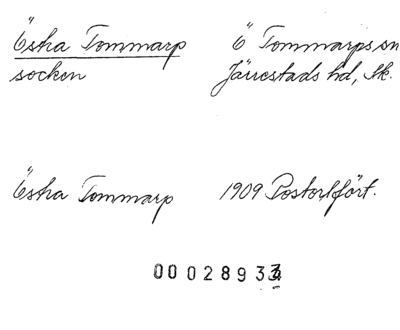 Östra Tommarp Ö Tommarps sn
socken Järrestads hd, Sk.
Östra Tommarp 1909 Postortfört.